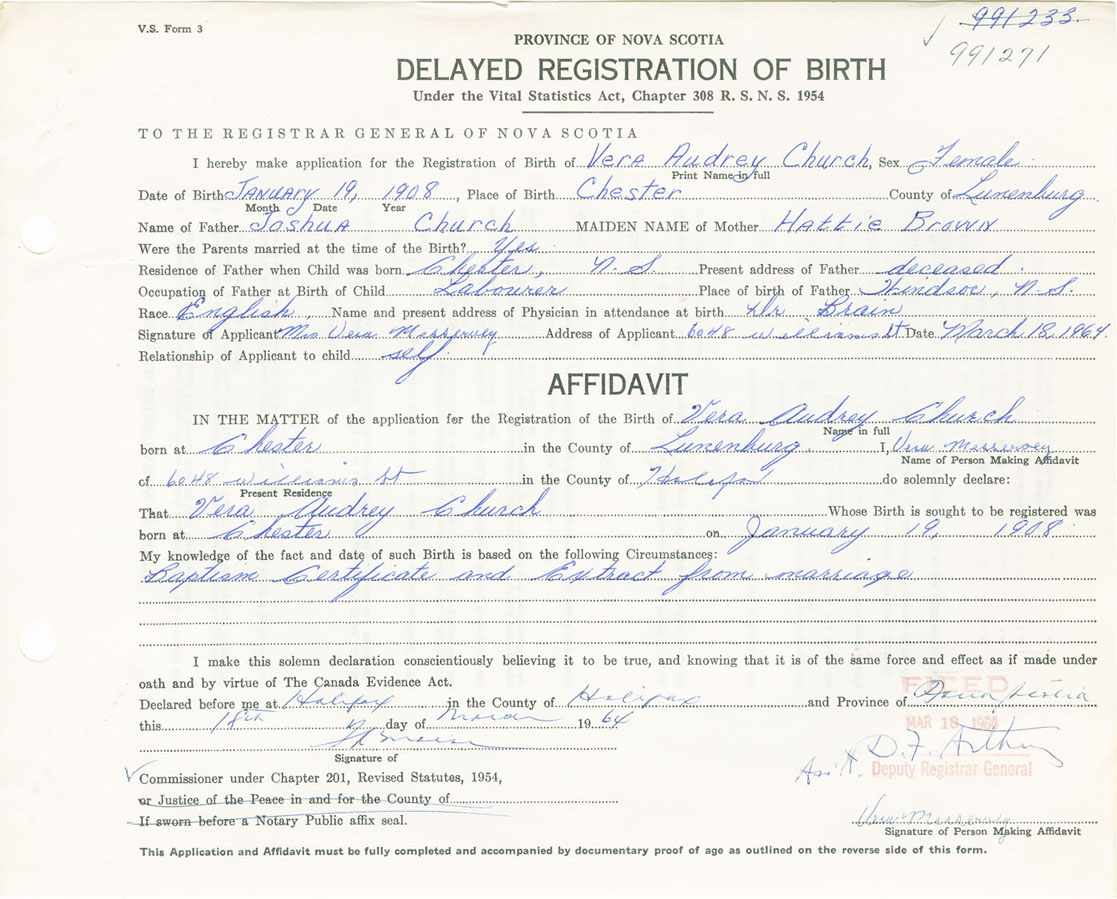 V.S. Form 3
991233
991271
PROVINCE OF NOVA SCOTIA
DELAYED REGISTRATION OF BIRTH
Under the Vital Statistics Act, Chapter 308 R. S. N. S. 1954
TO THE REGISTRAR GENERAL OF NOVA SCOTIA
I hereby make application for the Registration of Birth of Vera Audrey Church, Sex Female
Print Name in full
Date of Birth January 19, 1908, Place of Birth Chester County of Lunenburg
Month Date Year
Name of Father Joshua Church MAIDEN NAME of Mother Hattie Brown
Were the Parents married at the time of the Birth? Yes
Residence of Father when Child was born Chester, N.S. Present address of Father deceased.
Occupation of Father at Birth of Child Labourer Place of birth of Father Windsor, N.S.
Race English, Name and present address of Physician in attendance at birth Dr. Brain
Signature of Applicant Mrs Vera Masservey Address of Applicant 6048 Williams St Date March 18, 1964
Relationship of Applicant to child self.
AFFIDAVIT
IN THE MATTER of the application for the Registration of the Birth of Vera Audrey Church
Name in full
born at Chester in the County of Lunenburg. I, Vera Masservey
Name of Person Making Affidavit
of 6048 Williams St in the County of Halifax do solemnly declare:
Present Residence
That Vera Audrey Church Whose Birth is sought to be registered was
born at Chester on January 19, 1908
My knowledge of the fact and date of such Birth is based on the following Circumstances:
Baptism Certificate and Extract from marriage
I make this solemn declaration conscientiously believing it to be true, and knowing that it is of the same force and effect as if made under
oath and by virtue of The Canada Evidence Act.
FILED
Declared before me at Halifax in the County of Halifax and Province of Nova Scotia
this 18th day of March 1964
MAR 18 1964
D.F. Arthur
Signature of
Ass't. Deputy Registrar General
Commissioner under Chapter 201, Revised Statutes, 1954,
or Justice of the Peace in and for the County of
If sworn before a Notary Public affix seal.
Vera Masservey
Signature of Person Making Affidavit
This Application and Affidavit must be fully completed and accompanied by documentary proof of age as outlined on the reverse side of this form.